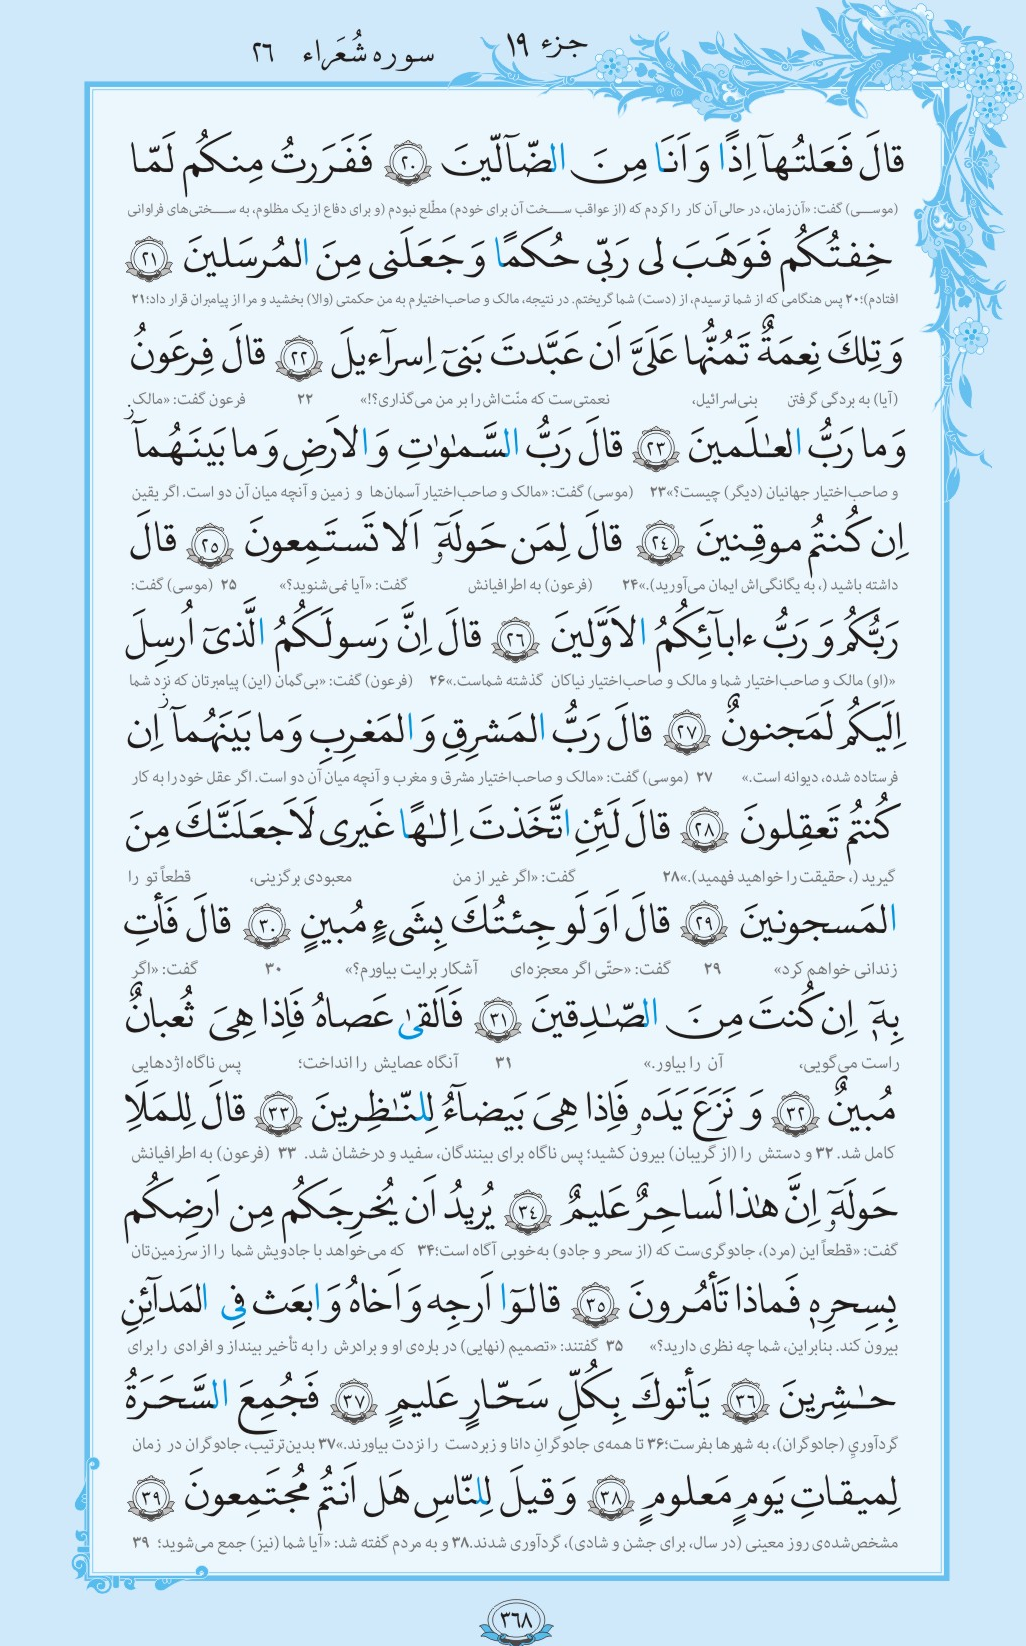 جزء ۱۹ سوره شُعَراء ۲۶
قالَ فَعَلتُهآ اِذًا وَ اَنَا مِنَ الضّآلّينَ ﴿٢٠﴾ فَفَرَرتُ مِنكُم لَمّا
(موســی) گفت: «آن‌زمان، در حالی آن کار را کردم که (از عواقب سخت آن برای خودم) مطّلع نبودم (و برای دفاع از یک مظلوم، به سختی‌های فراوانی
خِفتُكُم فَوَهَبَ لی رَبّی حُكمًا وَ جَعَلَنی مِنَ المُرسَلينَ ﴿٢١﴾
افتادم)؛۲۰ پس هنگامی که از شما ترسیدم، از (دست) شما گریختم. در نتیجه، مالک و صاحب‌اختیارم به من حکمتی (والا) بخشید و مرا از پیامبران قرار داد؛۲۱
وَ تِلكَ نِعمَةٌ تَمُنُّها عَلَیَّ اَن عَبَّدتَ بَنیٓ اِسرآءيلَ ﴿٢٢﴾ قالَ فِرعَونُ
(آیا) به بردگی گرفتن بنی‌اسرائیل، نعمتی‌ست که منّت‌اش را بر من می‌گذاری؟!» ۲۲ فرعون گفت: «مالک
وَ ما رَبُّ العـٰلَمينَ ﴿٢٣﴾ قالَ رَبُّ السَّمـٰوٰتِ وَ الاَرضِ وَ ما بَينَهُمآ ز
و صاحب‌اختیار جهانیان (دیگر) چیست؟»۲۳ (موسی) گفت: «مالک و صاحب‌اختیار آسمان‌ها و زمین و آنچه میان آن دو است. اگر یقین
اِن كُنتُم موقِنينَ ﴿٢٤﴾ قالَ لِمَن حَولَهٗٓ اَلا تَستَمِعونَ ﴿٢٥﴾ قالَ
داشته باشید (، به یگانگی‌اش ایمان می‌آورید).»۲۴ (فرعون) به اطرافیانش گفت: «آیا نمی‌شنوید؟» ۲۵ (موسی) گفت:
رَبُّكُم وَ رَبُّ ءابآئِكُمُ الاَوَّلينَ ﴿٢٦﴾ قالَ اِنَّ رَسولَكُمُ الَّذیٓ اُرسِلَ
«(او) مالک و صاحب‌اختیار شما و مالک و صاحب‌اختیار نیاکان گذشته شماست.»۲۶ (فرعون) گفت: «بی‌گمان (این) پیامبرتان که نزد شما
اِلَيكُم لَمَجنونٌ ﴿٢٧﴾ قالَ رَبُّ المَشرِقِ وَ المَغرِبِ وَ ما بَينَهُمآ ز اِن
فرستاده شده، دیوانه است.» ۲۷ (موسی) گفت: «مالک و صاحب‌اختیار مشرق و مغرب و آنچه میان آن دو است. اگر عقل خود را به کار
كُنتُم تَعقِلونَ ﴿٢٨﴾ قالَ لَئِنِ اتَّخَذتَ اِلـٰهًا غَيری لَاَجعَلَنَّكَ مِنَ
گیرید (، حقیقت را خواهید فهمید).»۲۸ گفت: «اگر غیر از من معبودی برگزینی، قطعاً تو را
المَسجونينَ ﴿٢٩﴾ قالَ اَوَلَو جِئتُكَ بِشَیءٍ مُبينٍ ﴿٣٠﴾ قالَ فَأتِ
زندانی خواهم کرد» ۲۹ گفت: «حتّی اگر معجزه‌ای آشکار برایت بیاورم؟» ۳۰ گفت: «اگر
بِهٖٓ اِن كُنتَ مِنَ الصّـٰدِقينَ ﴿٣١﴾ فَاَلقیٰ عَصاهُ فَاِذا هِیَ ثُعبانٌ
راست می‌گویی، آن را بیاور.» ۳۱ آنگاه عصایش را انداخت؛ پس ناگاه اژدهایی
مُبينٌ ﴿٣٢﴾ وَ نَزَعَ يَدَهٗ فَاِذا هِیَ بَيضآءُ لِلنّـٰظِرينَ ﴿٣٣﴾ قالَ لِلمَلَاِ
کامل شد. ۳۲ و دستش را (از گریبان) بیرون کشید؛ پس ناگاه برای بینندگان، سفید و درخشان شد. ۳۳ (فرعون) به اطرافیانش
حَولَهٗٓ اِنَّ هـٰذا لَساحِرٌ عَليمٌ ﴿٣٤﴾ يُريدُ اَن يُخرِجَكُم مِن اَرضِكُم
گفت: «قطعاً این (مرد)، جادوگری‌ست که (از سحر و جادو) به‌خوبی آگاه است؛۳۴ که می‌خواهد با جادویش شما را از سرزمین‌تان
بِسِحرِهٖ فَماذا تَأمُرونَ ﴿٣٥﴾ قالوٓا اَرجِه وَ اَخاهُ وَ ابعَث فِی المَدآئِنِ
بیرون کند. بنابراین، شما چه نظری دارید؟» ۳۵ گفتند: «تصمیم (نهایی) در باره‌ی او و برادرش را به تأخیر بینداز و افرادی را برای
حـٰشِرينَ ﴿٣٦﴾ يَأتوكَ بِكُلِّ سَحّارٍ عَليمٍ ﴿٣٧﴾ فَجُمِعَ السَّحَرَةُ
گردآوریِ (جادوگران)، به شهرها بفرست؛۳۶ تا همه‌ی جادوگرانِ دانا و زبردست را نزدت بیاورند.»۳۷ بدین‌ترتیب، جادوگران در زمان
لِميقاتِ يَومٍ مَعلومٍ ﴿٣٨﴾ وَ قيلَ لِلنّاسِ هَل اَنتُم مُجتَمِعونَ ﴿٣٩﴾
مشخص‌شده‌ی روز معینی (در سال، برای جشن و شادی)، گردآوری شدند.۳۸ و به مردم گفته شد: «آیا شما (نیز) جمع می‌شوید؛ ۳۹
۳۶۸